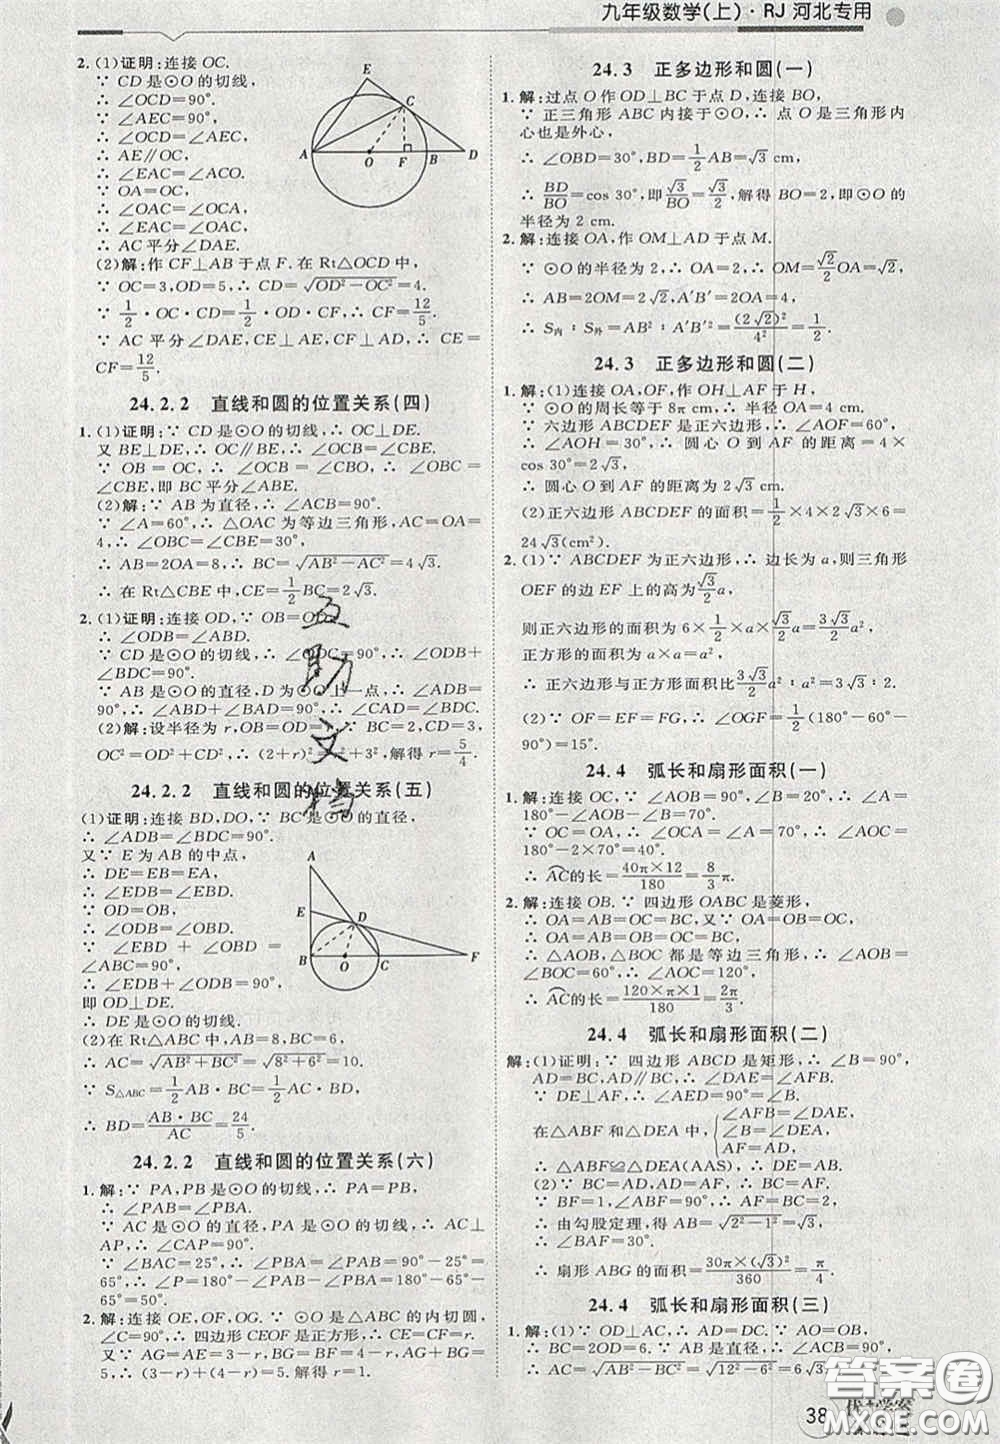 九年级数学(上)·RJ 河北专用
2. (1)证明:连接 OC.
∵ CD 是⊙O 的切线,
∴ ∠OCD=90°.
∵ ∠AEC=90°,
∴ ∠OCD=∠AEC.
∴ AE∥OC,
∴ ∠EAC=∠ACO.
∵ OA=OC,
∴ ∠OAC=∠OCA,
∴ ∠EAC=∠OAC,
∴ AC 平分∠DAE.
(2)解:作 CF⊥AB 于点 F. 在 Rt△OCD 中,
∵ OC=3,OD=5,∴ CD=√(OD²-OC²)=4.
∵ 1/2·OC·CD=1/2·OD·CF,∴ CF=12/5.
∵ AC 平分∠DAE,CE⊥AE,CF⊥AD,∴ CE=
CF=12/5.
E
C
A
O
F
B
D
24.2.2 直线和圆的位置关系(四)
1. (1)证明:∵ CD 是⊙O 的切线,∴ OC⊥DE.
又 BE⊥DE,∴ OC∥BE,∴ ∠OCB=∠CBE.
∵ OB=OC,∴ ∠OCB=∠CBO,∴ ∠OBC=
∠CBE,即 BC 平分∠OBE.
(2)解:∵ AB 为直径,∴ ∠ACB=90°.
∵ ∠A=60°,∴ △OAC 为等边三角形,AC=OA=
4,
∴ AB=2OA=8,∴ BC=√(AB²-AC²)=4√3.
∴ 在 Rt△CBE 中,CE=1/2BC=2√3.
2. (1)证明:连接 OD,∵ OB=OD,
∴ ∠ODB=∠ABD.
∵ CD 是⊙O 的切线,∴ ∠ODC=90°,∴ ∠ODB+
∠BDC=90°.
∵ AB 是⊙O 的直径,D 为⊙O 上一点,∴ ∠ADB=
90°,∴ ∠ABD+∠BAD=90°,∴ ∠CAD=∠BDC.
(2)解:设半径为 r,OB=OD=r,∵ BC=2,CD=3,
OC²=OD²+CD²,∴ (2+r)²=r²+3²,解得 r=5/4.
24.2.2 直线和圆的位置关系(五)
(1)证明:连接 BD,DO,∵ BC 是⊙O 的直径,
∴ ∠ADB=∠BDC=90°.
又∵ E 为 AB 的中点,
∴ DE=EB=EA,
∴ ∠EDB=∠EBD.
∵ OD=OB,
∴ ∠ODB=∠OBD.
∵ ∠EBD+∠OBD=
∠ABC=90°,
∴ ∠EDB+∠ODB=90°,
即 OD⊥DE.
∴ DE 是⊙O 的切线.
(2)在 Rt△ABC 中,AB=8,BC=6,
∴ AC=√(AB²+BC²)=√(8²+6²)=10.
∵ S△ABC=1/2AB·BC=1/2AC·BD,
∴ BD=AB·BC/AC=24/5.
A
E
D
B
O
C
F
24.2.2 直线和圆的位置关系(六)
1. 解:∵ PA,PB 是⊙O 的切线,∴ PA=PB,
∴ ∠PAB=∠PBA.
∵ AC 是⊙O 的直径,PA 是⊙O 的切线,∴ AC⊥
AP,∴ ∠CAP=90°.
∵ ∠BAC=25°,∴ ∠PBA=∠PAB=90°-25°=
65°,∴ ∠P=180°-∠PAB-∠PBA=180°-65°-
65°=50°.
2. 解:连接 OE,OF,OG. ∵ ⊙O 是△ABC 的内切圆,
∠C=90°,∴ 四边形 CEOF 是正方形,∴ CE=CF=r.
又∵ AG=AE=3-r,BG=BF=4-r,AG+BG=
5,∴ (3-r)+(4-r)=5. 解得 r=1.
24.3 正多边形和圆(一)
1. 解:过点 O 作 OD⊥BC 于点 D,连接 BO,
∵ 正三角形 ABC 内接于⊙O,∴ 点 O 是三角形内
心也是外心,
∴ ∠OBD=30°,BD=1/2AB=√3(cm).
∴ BD/BO=cos 30°,即√3/BO=√3/2,解得 BO=2,即⊙O 的
半径为 2 cm.
2. 解:连接 OA,作 OM⊥AD 于点 M.
∵ ⊙O 的半径为 2,∴ OA=2,∴ OM=√2/2OA=√2,
∴ AB=2OM=2√2,A′B′=2OA=4.
∴ S内∶S外=AB²∶A′B′²=(2√2)²/4²=1/2.
24.3 正多边形和圆(二)
1. 解:(1)连接 OA,OF,作 OH⊥AF 于 H,
∵ ⊙O 的周长等于 8π cm,∴ 半径 OA=4 cm,
∵ 六边形 ABCDEF 是正六边形,∴ ∠AOF=60°,
∴ ∠AOH=30°,∴ 圆心 O 到 AF 的距离=4×
cos 30°=2√3.
∴ 圆心 O 到 AF 的距离为 2√3 cm.
(2)正六边形 ABCDEF 的面积=1/2×4×2√3×6=
24√3(cm²).
2. (1)∵ ABCDEF 为正六边形,∴ 边长为 a,则三角形
OEF 的边 EF 上的高为√3/2a,
则正六边形的面积为 6×1/2×a×√3/2a=3√3/2a²,
正方形的面积为 a×a=a²,
∴ 正六边形与正方形面积比3√3/2a²∶a²=3√3∶2.
(2)∵ OF=EF=FG,∴ ∠OGF=1/2(180°-60°-
90°)=15°.
24.4 弧长和扇形面积(一)
1. 解:连接 OC,∵ ∠AOB=90°,∠B=20°,∴ ∠A=
180°-∠AOB-∠B=70°.
∵ OC=OA,∴ ∠OCA=∠A=70°,∴ ∠AOC=
180°-2×70°=40°.
∴ AC的长=40π×12/180=8/3π.
2. 解:连接 OB. ∵ 四边形 OABC 是菱形,
∴ OA=AB=BC=OC,又∵ OA=OB=OC,
∴ OA=AB=OB=BC=OC.
∴ △AOB,△BOC 都是等边三角形,∴ ∠AOC=120°,
∴ AC的长=120×π×1/180=2π/3.
24.4 弧长和扇形面积(二)
解:(1)证明:∵ 四边形 ABCD 是矩形,∴ ∠B=90°,
AD=BC,AD∥BC,∴ ∠DAE=∠AFB.
∵ DE⊥AF,∴ ∠AED=90°=∠B.
在△ABF 和△DEA 中,{∠AFB=∠DAE,
∠B=∠DEA,
AF=AD,
∴ △ABF≌△DEA(AAS),∴ DE=AB.
(2)∵ BC=AD,AD=AF,∴ BC=AF.
∵ BF=1,∠ABF=90°,∴ AF=BC=2.
∴ 由勾股定理,得 AB=√(2²-1²)=√3,
∴ ∠BAF=30°.
∴ 扇形 ABG 的面积=30π×(√3)²/360=π/4.
24.4 弧长和扇形面积(三)
1. 解:(1)∵ OD⊥AC,∴ AD=CD. ∵ AO=OB,∴
BC=2OD=6. ∵ AB 是直径,∴ ∠ACB=90°,
∴ AC=√(AB²-BC²)=√(12²-6²)=6√3.
互助文档
38
答案圈
MXQE.COM